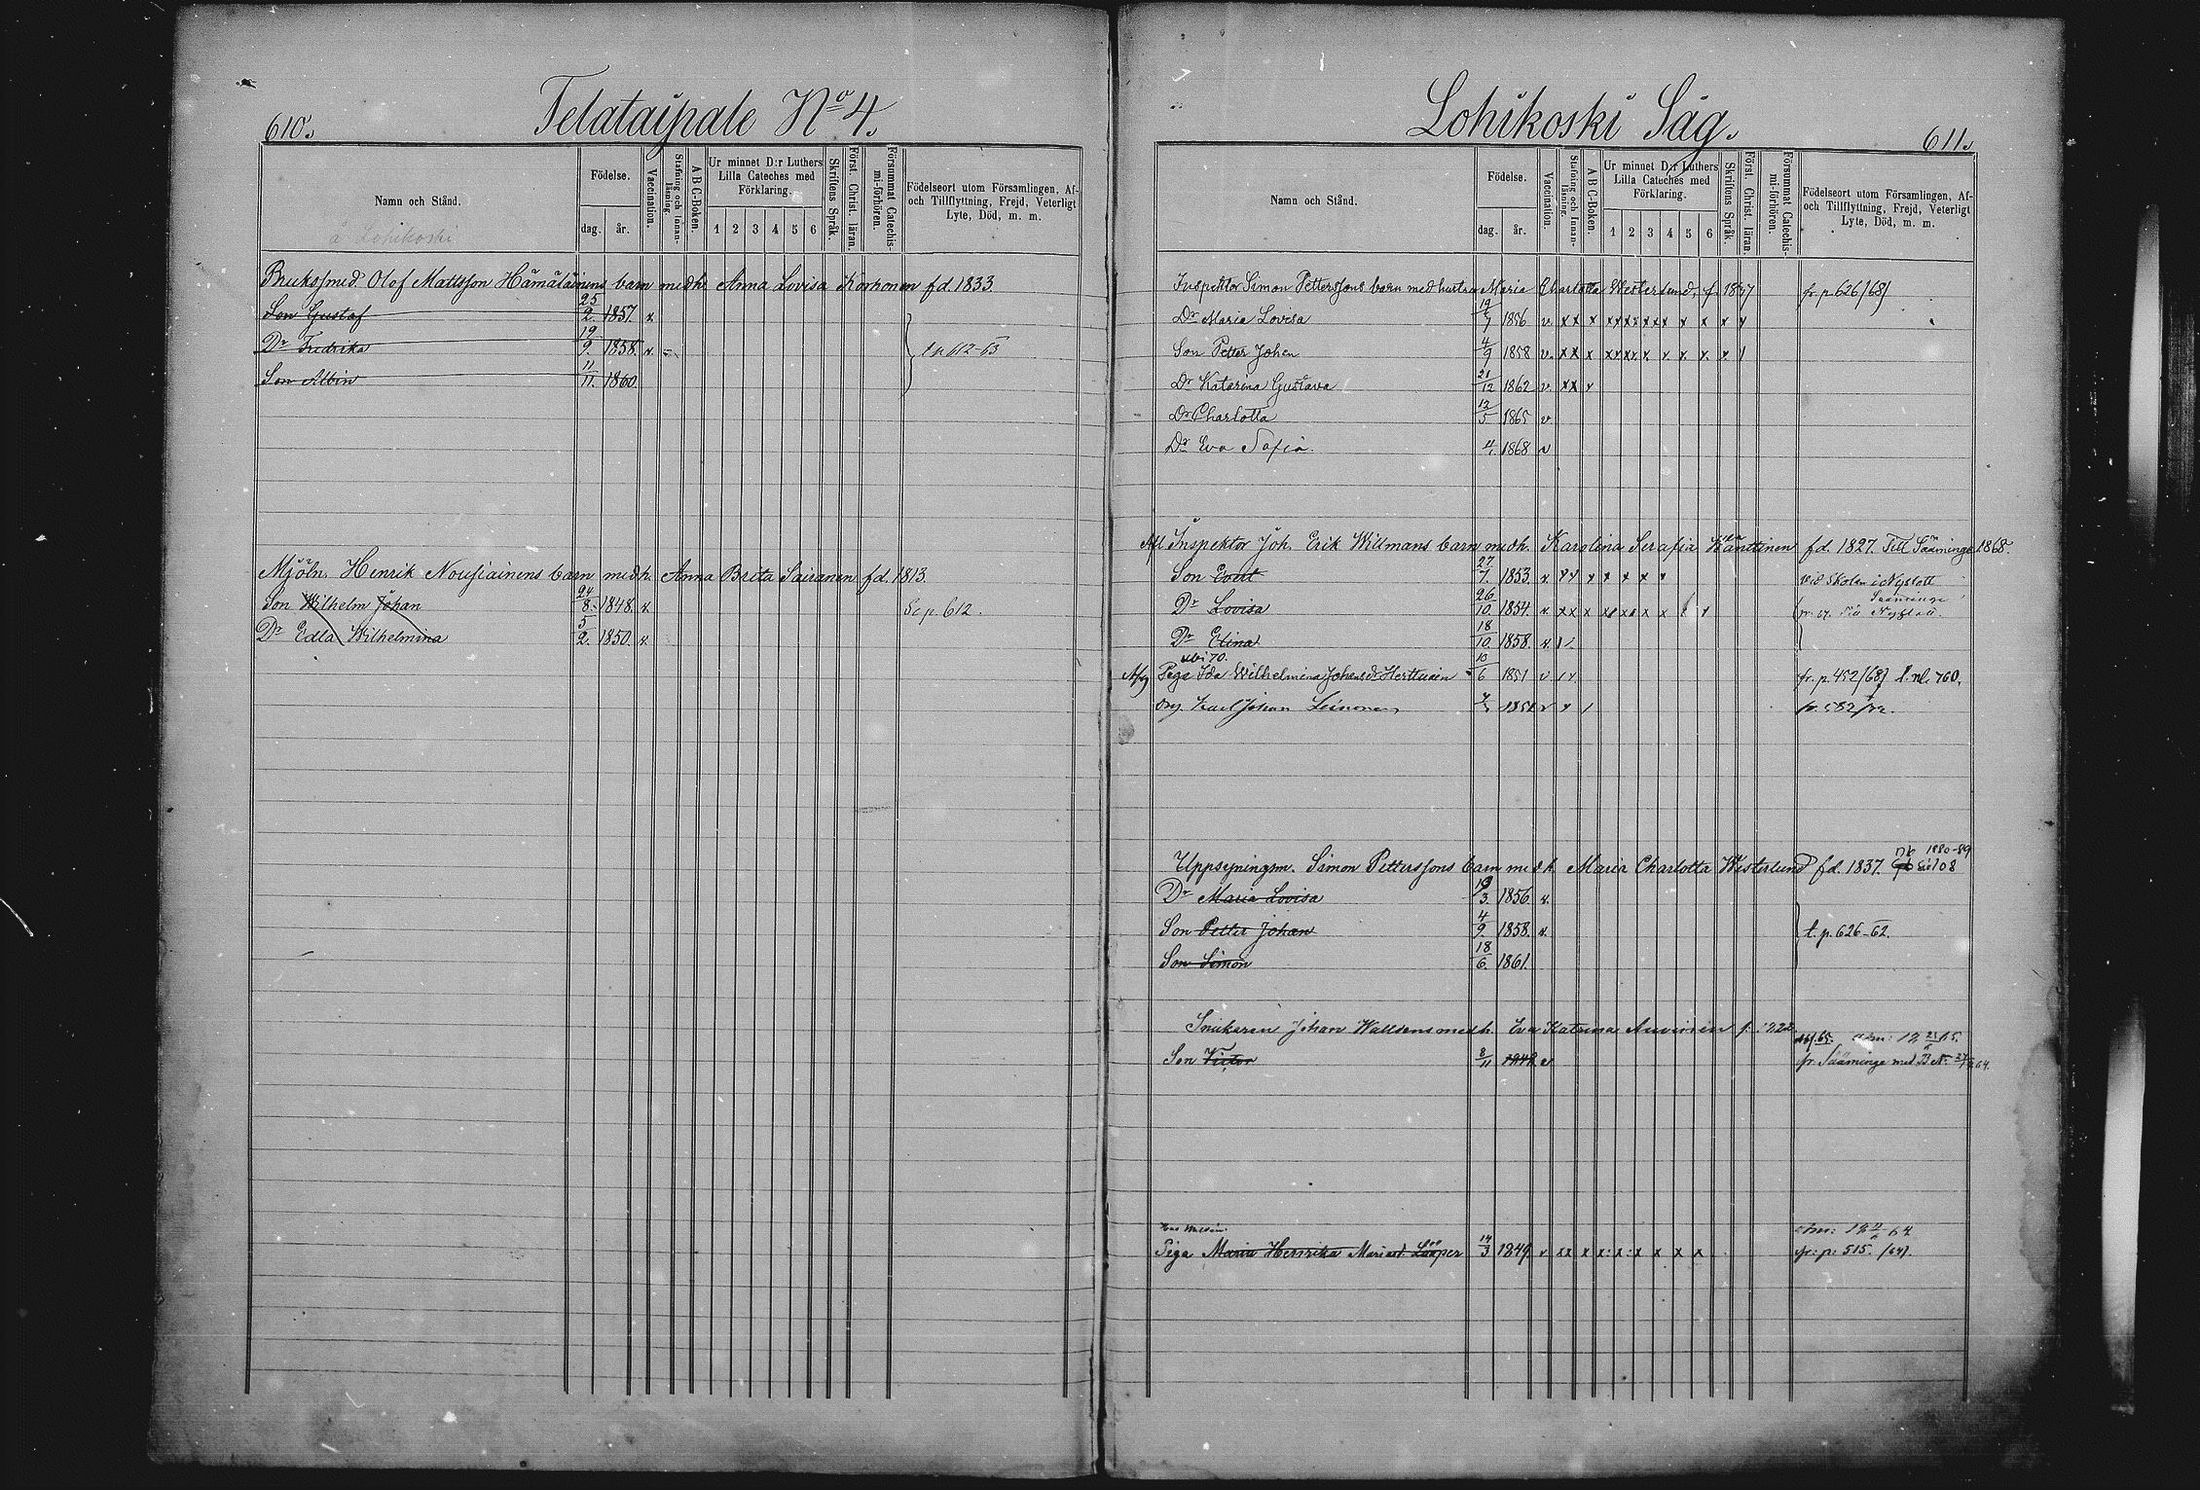 610.
Telataipale No 4.
Namn och Stånd.
Födelse.
dag.
år.
Vaccination.
Stafning och Innan-läsning.
A B C-Boken.
Ur minnet D:r Luthers
Lilla Cateches med
Förklaring.
1 2 3 4 5 6
Skriftens Språk.
Först. Christ. läran.
Försummat Catechis-mi-förhören.
Födelseort utom Församlingen, Af-
och Tillflyttning, Frejd, Veterligt
Lyte, Död, m. m.
å Lohikoski
Brukssmed. Olof Mattsson Hämäläinens barn medh. Anna Lovisa Korhonen fd. 1833
Son Gustaf 25/2. 1857. v.
Dr Fredrika 19/9. 1858. v. t p 612-63
Son Albin 11/11. 1860
Mjöln. Henrik Nousiainens barn medh. Anna Brita Sairanen fd. 1813.
Son Wilhelm Johan 24/8. 1848. v. Se p. 612.
Dr Edla Wilhelmina 5/2. 1850. v.
Lohikoski Såg.
611.
Namn och Stånd.
Födelse.
dag.
år.
Vaccination.
Stafning och Innan-läsning.
A B C-Boken.
Ur minnet D:r Luthers
Lilla Cateches med
Förklaring.
1 2 3 4 5 6
Skriftens Språk.
Först. Christ. läran.
Försummat Catechis-mi-förhören.
Födelseort utom Församlingen, Af-
och Tillflyttning, Frejd, Veterligt
Lyte, Död, m. m.
Inspektor Simon Petterssons barn med hustru Maria Charlotta Westerlund, f. 1837 fr. p 626/68/
Dr Maria Lovisa 1856 v. xx x xx xx x xx x x x x
Son Petter Johan 4/9 1858 v. xx x xx xx x x x x x
Dr Katarina Gustava 21/12 1862 v. xx x
Dr Charlotta 12/5 1865 v
Dr Eva Sofia. 4/1. 1868 v
Afl Inspektor Joh. Erik Willmans barn medh. Karolina Serafia Wänttinen fd. 1827. Till Sääminge 1868.
Son Evert 27/7. 1853. v. x x x x x x vid Skolan i Nyslott
Sääminge
Dr Lovisa 26/10 1854. v. xx x x x x x
Dr Elina 18/10. 1858. v.
ubi 70.
Piga Ida Wilhelmina Johansdr Herttuain 10/6 1851 v fr. p. 452/68/ l. nl. 760.
Karl Johan Leinonen fr. 582/72.
1880-89
Uppsyningsm. Simon Petterssons barn medh. Maria Charlotta Westerlund fd. 1837. 708
Dr Maria Lovisa 19/3. 1856. v.
Son Petter Johan 4/9. 1858. v. t. p. 626-62.
Son Simon 18/6. 1861.
Snickaren Johan Walldens medh. Eva Katrina Auvinen
Son Victor 2/11 1848 v fr. Sääminge med Bet.
Piga Maria Henrika Mariasd. Lööper 14/3 1849. v xx x x: x: x x x x fr: p: 515. /64/.